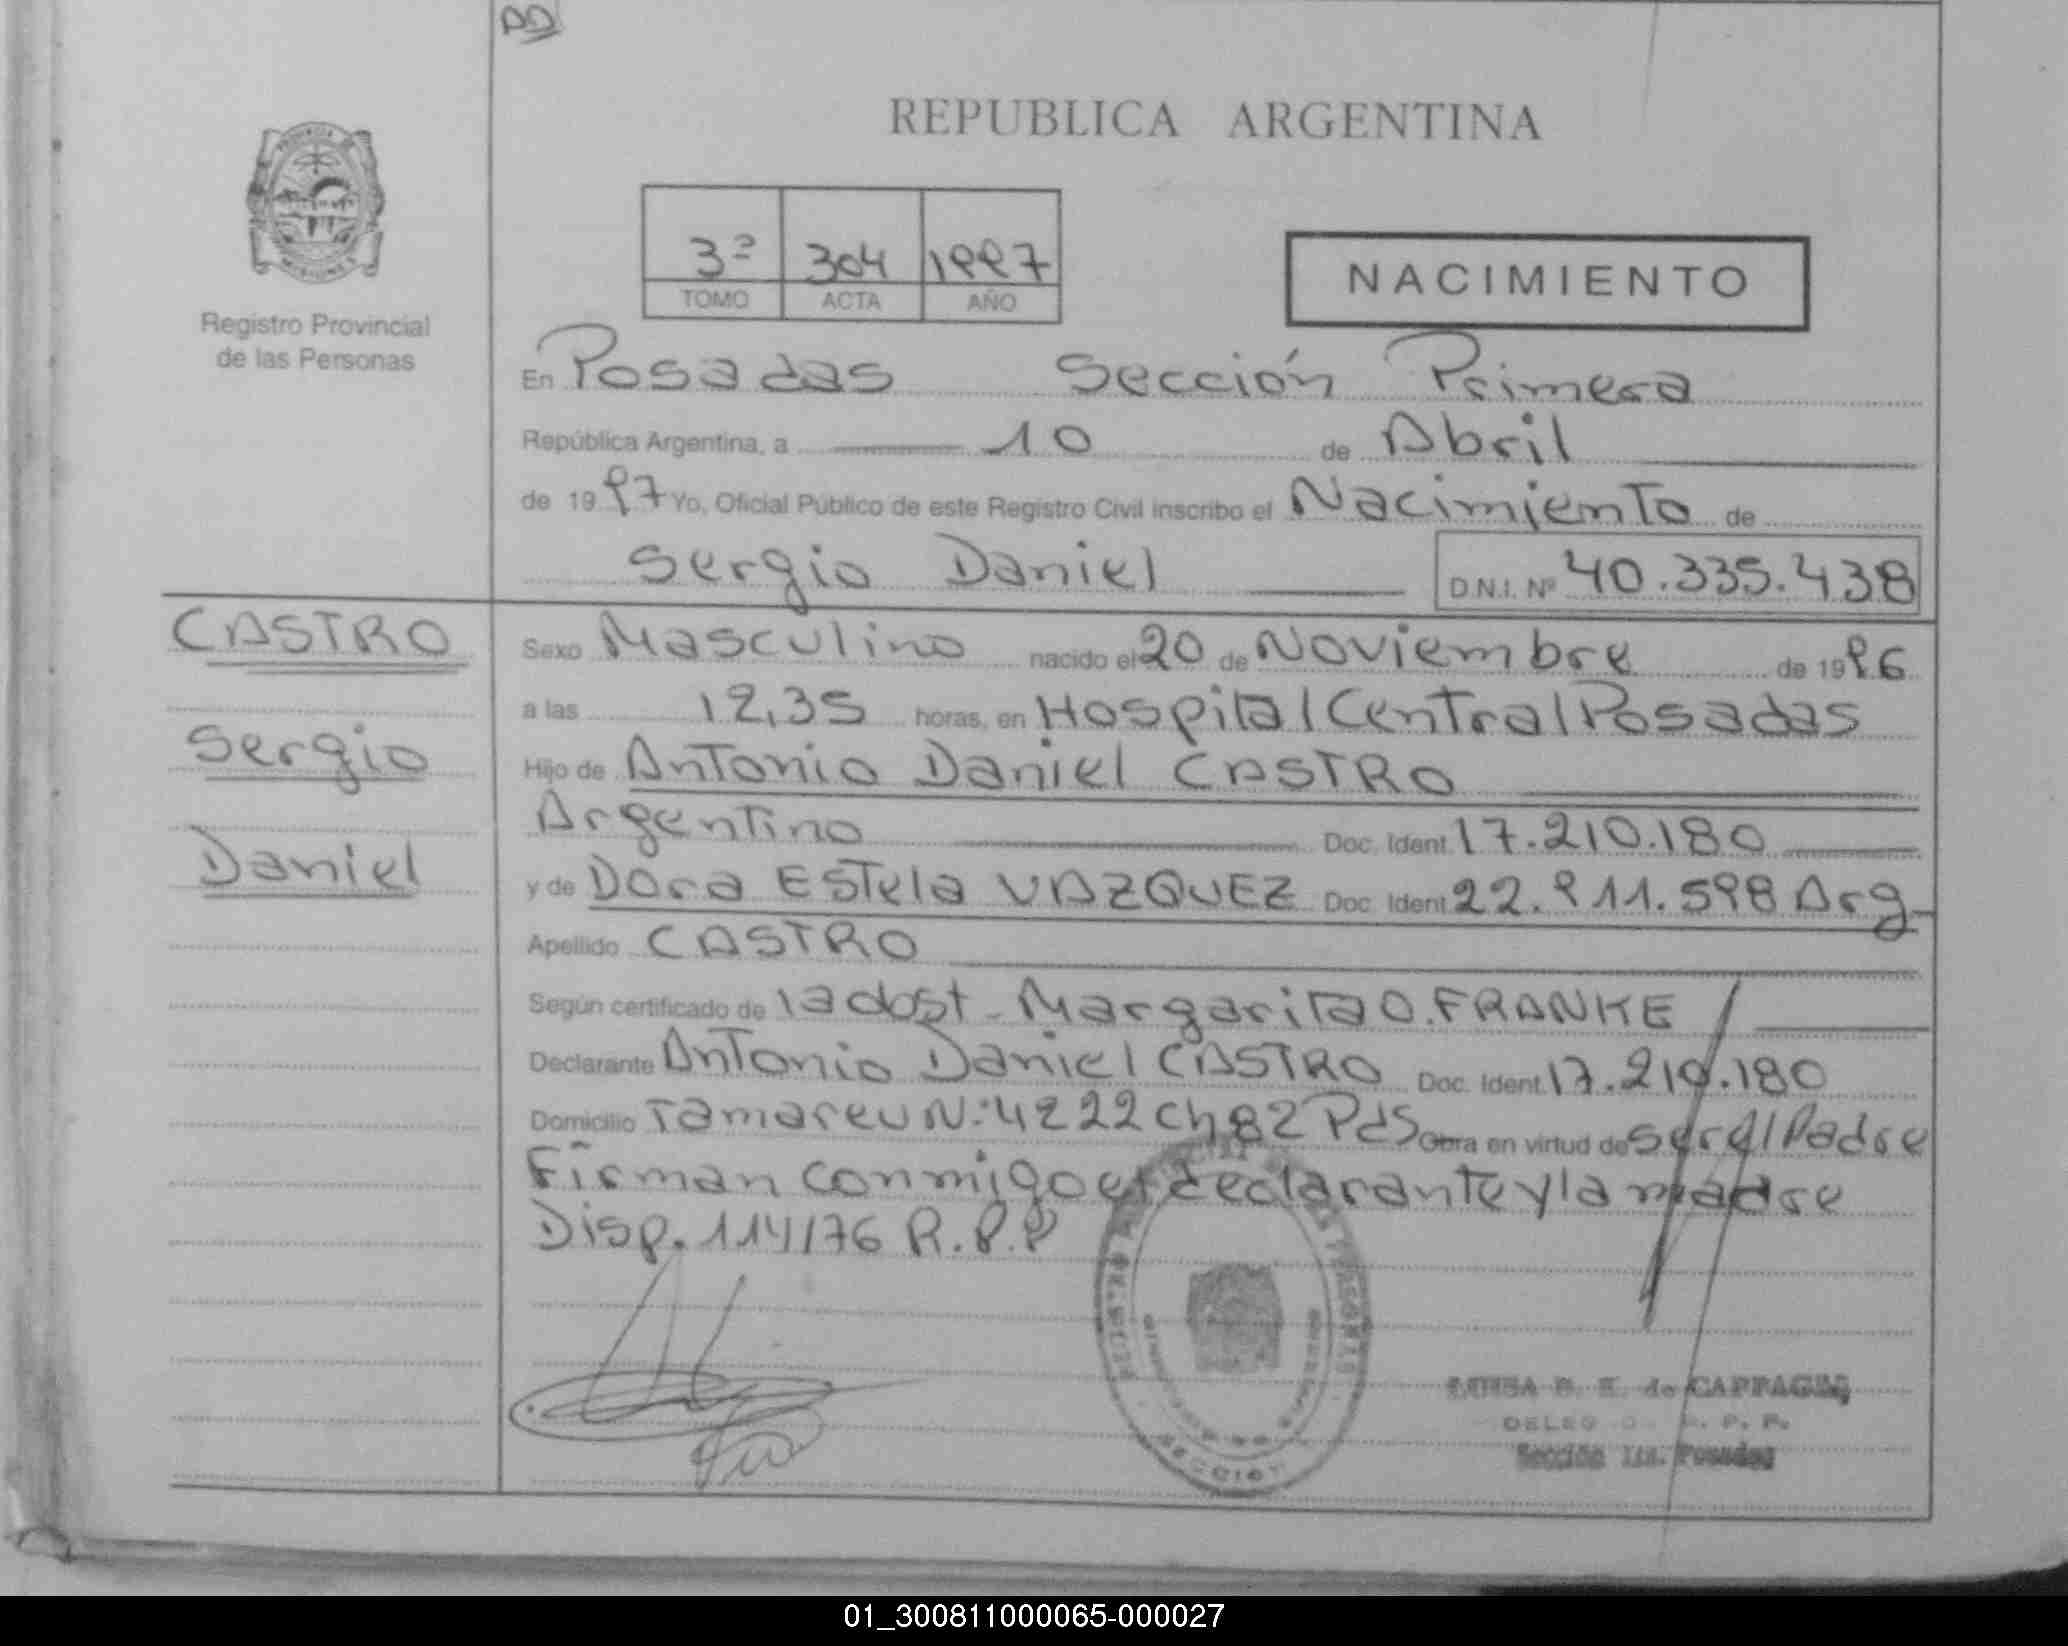 REPUBLICA ARGENTINA
3º 304 1997
TOMO ACTA AÑO
NACIMIENTO
Registro Provincial
de las Personas
En Posadas Sección Primera
República Argentina, a 10 de Abril
de 1997 Yo, Oficial Público de este Registro Civil inscribo el Nacimiento de
Sergio Daniel D.N.I. Nº 40.335.438
CASTRO
Sergio
Daniel
Sexo Masculino nacido el 20 de Noviembre de 1996
a las 12,35 horas, en Hospital Central Posadas
Hijo de Antonio Daniel CASTRO
Argentino Doc. Ident. 17.210.180
y de Dora Estela VAZQUEZ Doc. Ident. 22.911.598 Arg
Apellido CASTRO
Según certificado de la obst. Margarita O. FRANKE
Declarante Antonio Daniel CASTRO Doc. Ident. 17.210.180
Domicilio Tamareu N:4222 Ch82 Pds Obra en virtud de ser el Padre
Firman conmigo el declarante y la madre
Disp. 114/76 R.P.P
de CAPPAGLI
R. P. P.
Sección 1ra. Posadas
01_300811000065-000027